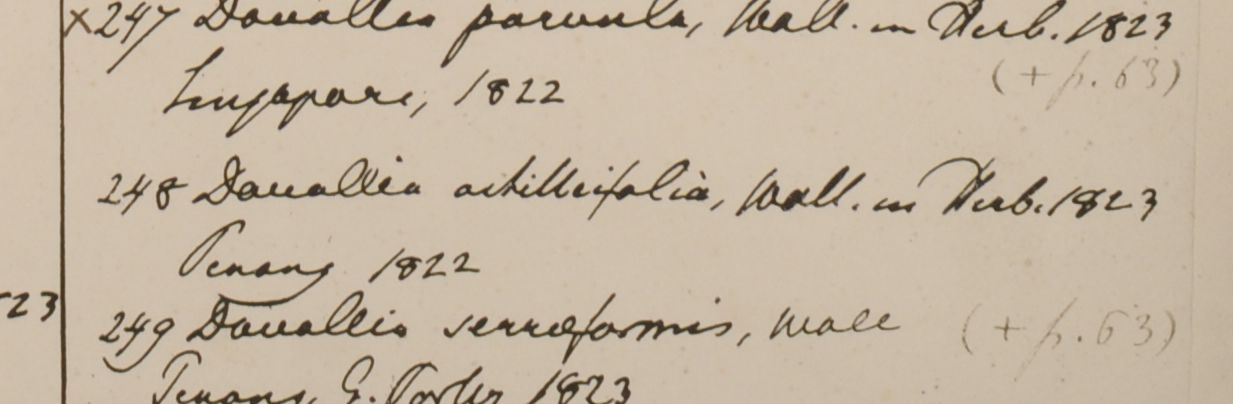 ×247 Davallia parvula, Wall. in Herb. 1823
(+ p. 63)
Singapore, 1822
248 Davallia achilleifolia, Wall. in Herb. 1823
Penang 1822
23
249 Davallia serraeformis, Wall (+ p. 63)
Penang, G. Porter 1823